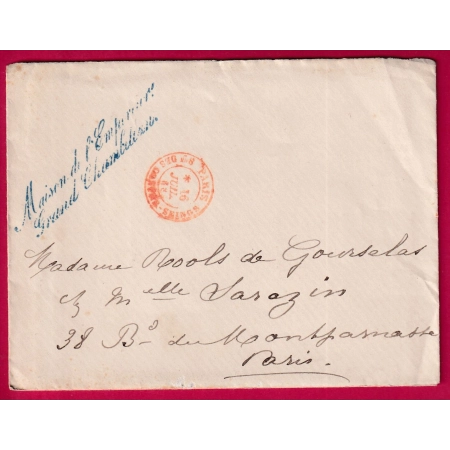 Maison de l'Empereur.
Grand Chambellan.
PARIS
16
JUIL.
Madame Rools de Gourselas
ch Melle Sarazin
38 Bd du Montparnasse
Paris.